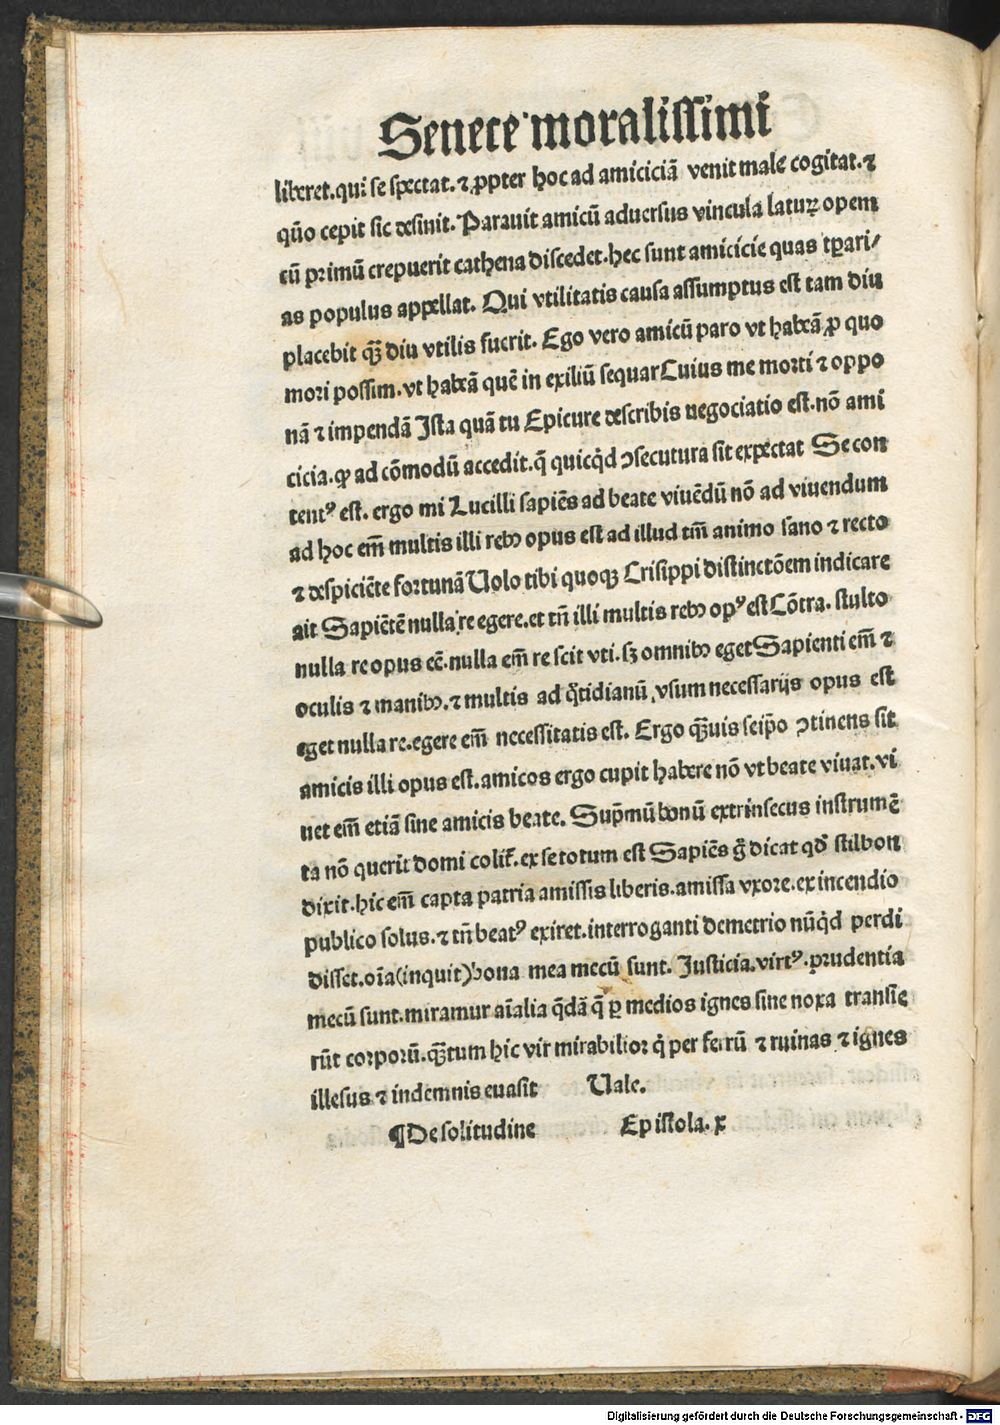 Senece moralissimi
liberet.qui se spectat.⁊ ꝓpter hoc ad amiciciā venit male cogitat.⁊
qūo cepit sic desinit. Parauit amicū aduersus vincula laturꝫ opem
cū primū crepuerit cathena discedet.hec sunt amicicie quas tꝑari/
as populus appellat. Qui vtilitatis causa assumptus est tam diu
placebit qꝫ̄ diu vtilis fuerit. Ego vero amicū paro vt habeā ꝓ quo
mori possim.vt habeā quē in exiliū sequar Cuius me morti ⁊ oppo
nā ⁊ impendā Ista quā tu Epicure describis negociatio est.nō ami
cicia.ꝙ ad cōmodū accedit.q̄ quicq̇d ↄsecutura sit expectat Se con
tentꝰ est. ergo mi Lucilli sapiēs ad beate viuēdū nō ad viuendum
ad hoc em̄ multis illi rebꝫ opus est ad illud tm̄ animo sano ⁊ recto
⁊ despiciēte fortunā Uolo tibi quoqꝫ Crisippi distinctōem indicare
ait Sapiētē nulla re egere.et tn̄ illi multis rebꝫ opꝰ est Cōtra. stulto
nulla re opus eē.nulla em̄ re scit vti.sꝫ omnibꝫ eget Sapienti em̄ ⁊
oculis ⁊ manibꝫ.⁊ multis ad q̇tidianū vsum necessarijs opus est
eget nulla re.egere em̄ necessitatis est. Ergo qꝫ̄uis seip̄o ↄtinens sit
amicis illi opus est.amicos ergo cupit habere nō vt beate viuat.vi
uet em̄ etiā sine amicis beate. Sup̄mū bonū extrinsecus instrumē
ta nō querit domi colit̄. ex se totum est Sapiēs g̊ dicat qd̄ stilbon
dixit.hic em̄ capta patria amissis liberis.amissa vxore.ex incendio
publico solus.⁊ tn̄ beatꝰ exiret.interroganti demetrio nūq̇d perdi
disset.oīa(inquit)bona mea mecū sunt. Justicia.virtꝰ.prudentia
mecū sunt.miramur aīalia q̇dā q̄ ꝑ medios ignes sine noxa transie
rūt corporū.qꝫ̄tum hic vir mirabilior q̇ per ferrū ⁊ ruinas ⁊ ignes
illesus ⁊ indemnis euasit Uale.
¶De solitudine Epistola. x
Digitalisierung gefördert durch die Deutsche Forschungsgemeinschaft - DFG